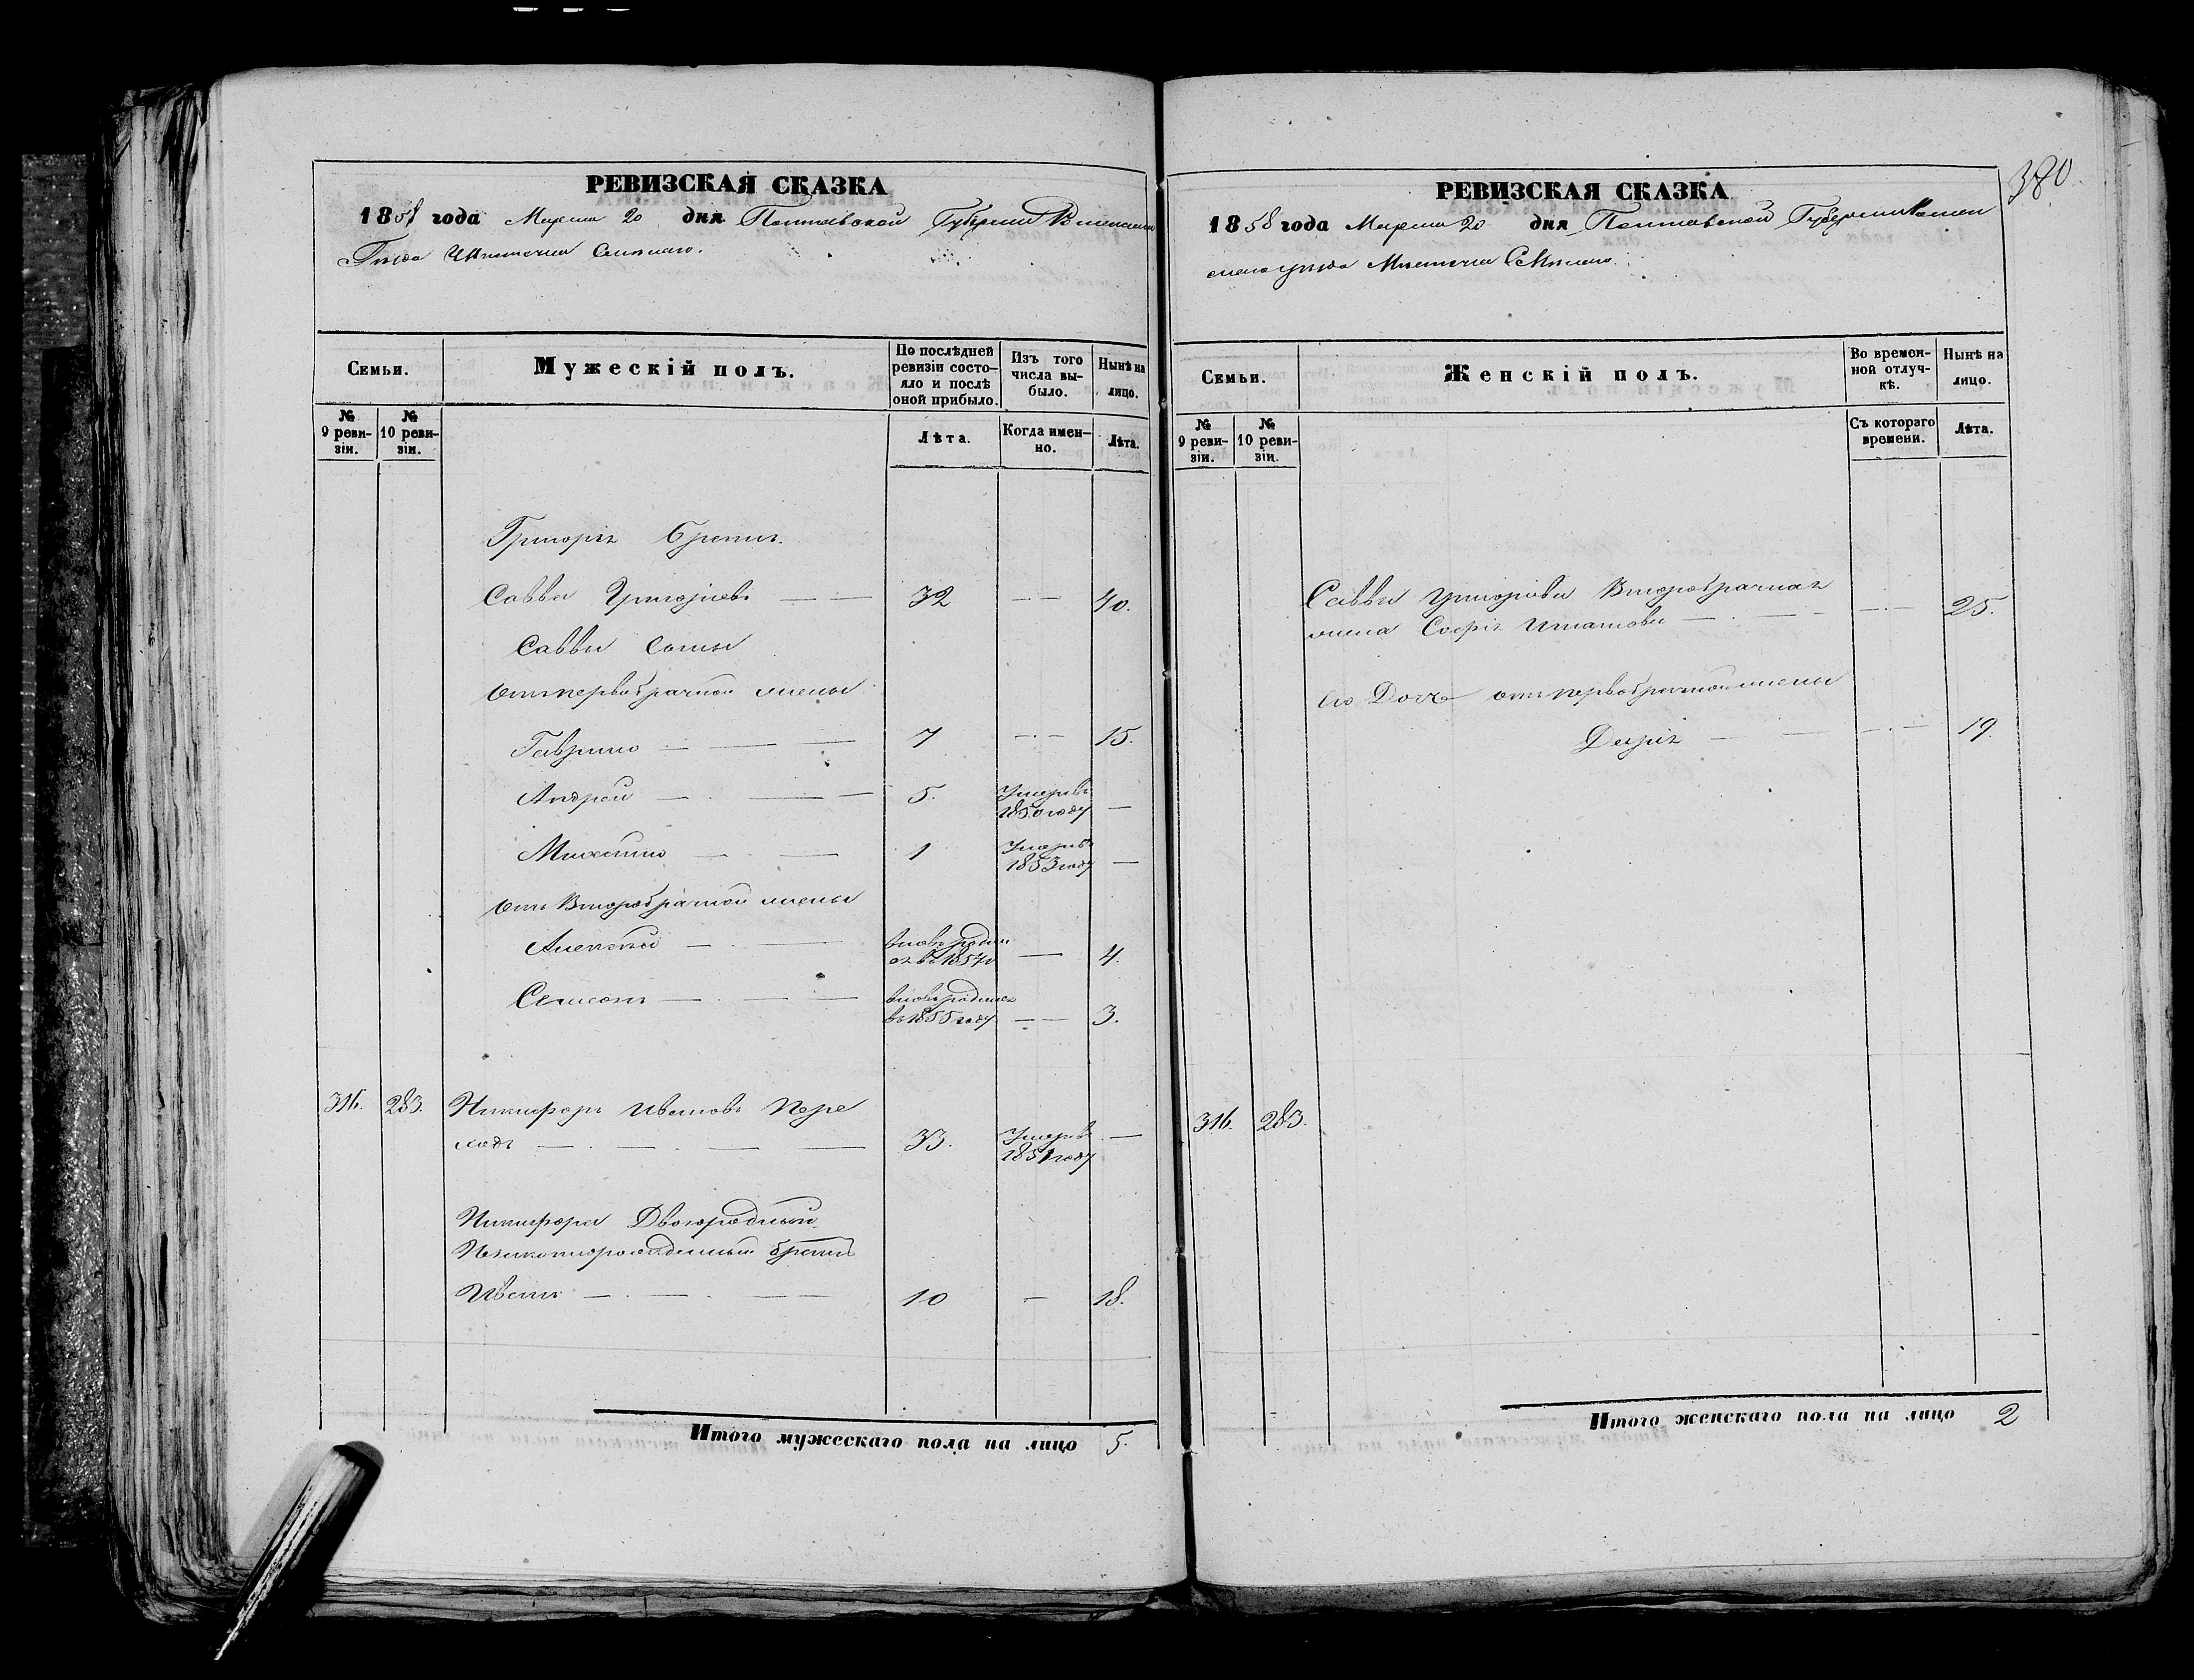 РЕВИЗСКАЯ СКАЗКА
1858 года Марта 20 дня Полтавской Губернии
уѣзда Мѣстечка
Семьи.
Мужескій полъ.
По послѣдней ревизіи состояло и послѣ оной прибыло.
Изъ того числа выбыло.
Нынѣ на лицо.
№ 9 ревизіи.
№ 10 ревизіи.
Лѣта.
Когда именно.
Лѣта.
Григорія братъ.
Савва Григоріевъ — — 32 — — 40.
Саввы сыны
отъ первобрачной жены
Гаврило — — — 7 — — 15.
Андрей — — — 5. Умеръ въ 1850 году —
Михайло — — 1 Умеръ въ 1853 году —
отъ второбрачной жены
Алексѣй — — вновь родился въ 1854 г — 4.
Самсонъ — — — вновь родился въ 1855 году — — 3.
316. 283. Никифоръ Ивановъ Пере
ходъ — — — — 33. Умеръ въ 1851 году —
Никифора Двоюродный
Незаконнорожденный братъ
Иванъ — — — — 10 — 18.
Итого мужескаго пола на лицо 5.
380.
РЕВИЗСКАЯ СКАЗКА
1858 года Марта 20 дня Полтавской Губернии
уѣзда Мѣстечка
Семьи.
Женскій полъ.
Во временной отлучкѣ.
Нынѣ на лицо.
№ 9 ревизіи.
№ 10 ревизіи.
Съ котораго времени.
Лѣта.
Саввы Григоріева Второбрачная
жена Софія Игнатова — — — — 25.
его Дочь отъ первобрачной жены
Дарія — — — — 19.
316. 283.
Итого женскаго пола на лицо 2